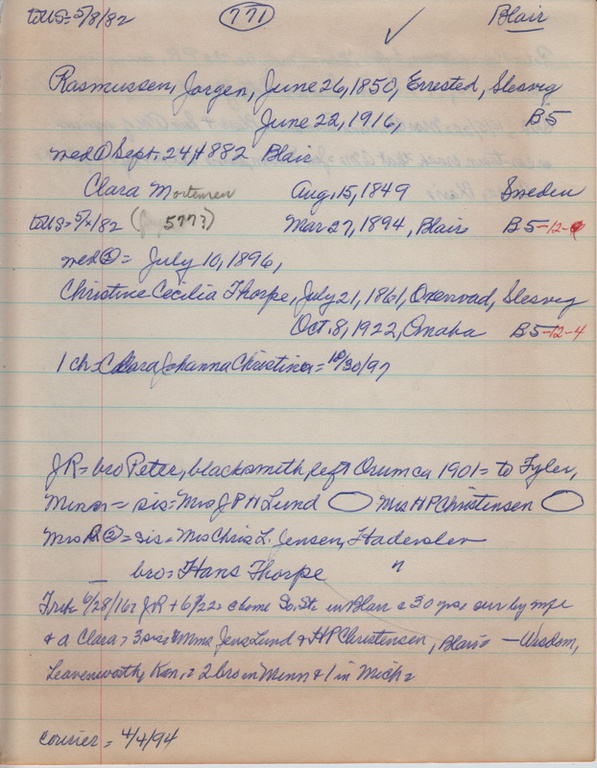 to US = 5/8/82 771 ✓ Blair
Rasmussen, Jorgen, June 26, 1850, Errested, Slesvig
June 22, 1916, B5
med ① Sept. 24, 1882 Blair
Clara Mortensen Aug, 15, 1849 Sweden
to US = 5/x/82 (577?) Mar 27, 1894, Blair B5-12-
med ② = July 10, 1896,
Christine Cecilia Thorpe, July 21, 1861, Oxenvad, Slesvig
Oct. 8, 1922, Omaha B5-12-4
1 ch = Clara Johanna Christina = 10/30/97
JR = bro Peter, blacksmith, left Orum ca 1901 = to Tyler,
Minn = sis = Mrs J P H Lund Mrs HP Christensen
Mrs R ② = sis = Mrs Chris L. Jensen, Haderslev
bro = Hans Thorpe "
Trib 6/28/16 = JR + 6/22 = home So. St. in Blair 30 yrs = sur by
+ a Clara = 3 sis = Jens Lund + HP Christensen, Blair = Wisdom,
Leavenworth, Kan, = 2 bro in Minn & 1 in Mich =
Courier = 4/4/94